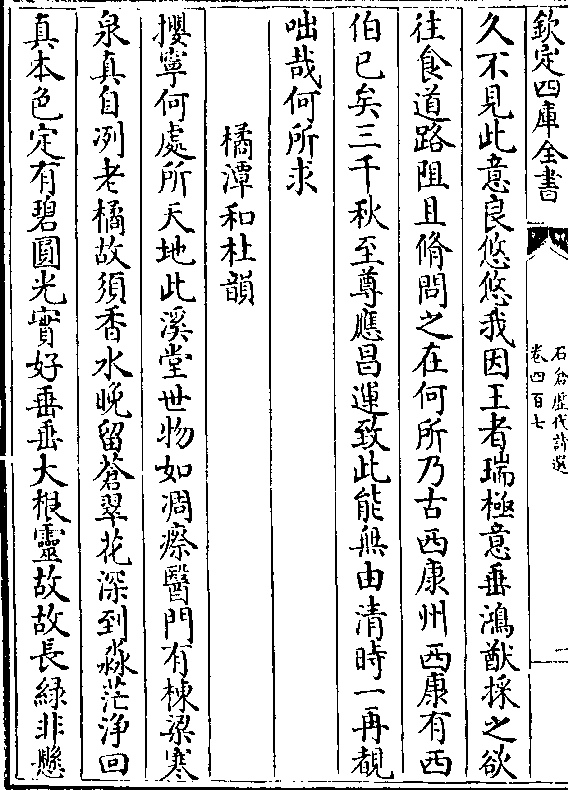 欽定四庫全書
石倉歴代詩選
卷四百七
一
久不見此意良悠悠我因王者瑞極意垂鴻猷採之欲
往食道路阻且脩問之在何所乃古西康州西康有西
伯已矣三千秋至尊應昌運致此能無由清時一再覩
咄哉何所求
橘潭和杜韻
攖寧何處所天地此溪堂世物如凋瘵醫門有棟梁寒
泉真自冽老橘故須香水晚留蒼翠花深到淼茫净回
真本色定有碧圓光實好垂垂大根靈故故長綠非懸